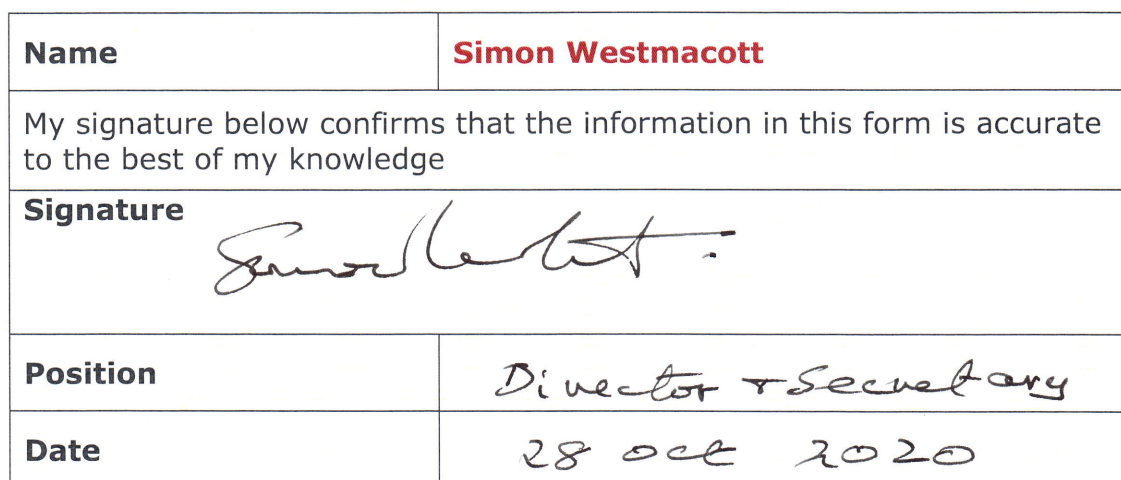 Name Simon Westmacott
My signature below confirms that the information in this form is accurate
to the best of my knowledge
Signature
Position Director + Secretary
Date 28 Oct 2020